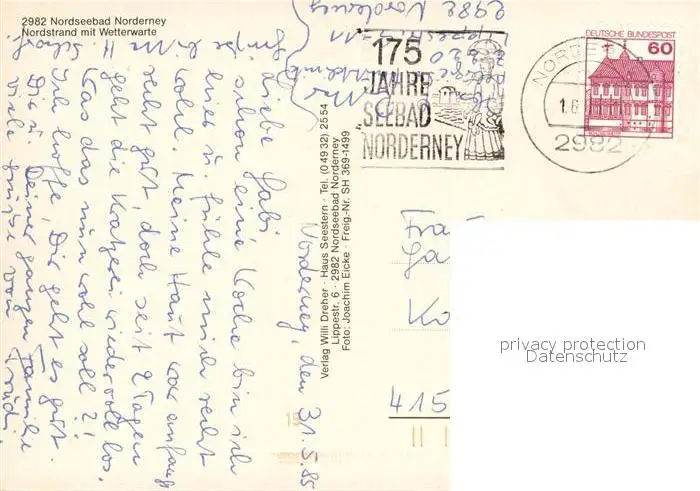 2982 Nordseebad Norderney
Nordstrand mit Wetterwarte
Norderney, den 31.5.85
Liebe Gabi
schon eine Woche bin ich
hier u. fühle mich recht
wohl. Meine Haut war anfangs
recht gut, doch seit 2 Tagen
geht die Kratzerei wieder voll los.
Was das nun wohl soll?!
Ich hoffe, Dir geht es gut.
Dir u. Deiner ganzen Familie
viele Grüße von
Trudi
2982 Norderney
Verlag Willi Dreher · Haus Seestern · Tel. (0 49 32) 25 54
Lippestr. 6 · 2982 Nordseebad Norderney
Foto: Joachim Eicke · Freig.-Nr. SH 369-1499
175
JAHRE
SEEBAD
NORDERNEY
DEUTSCHE BUNDESPOST
60
2982
Ko
415
privacy protection
Datenschutz